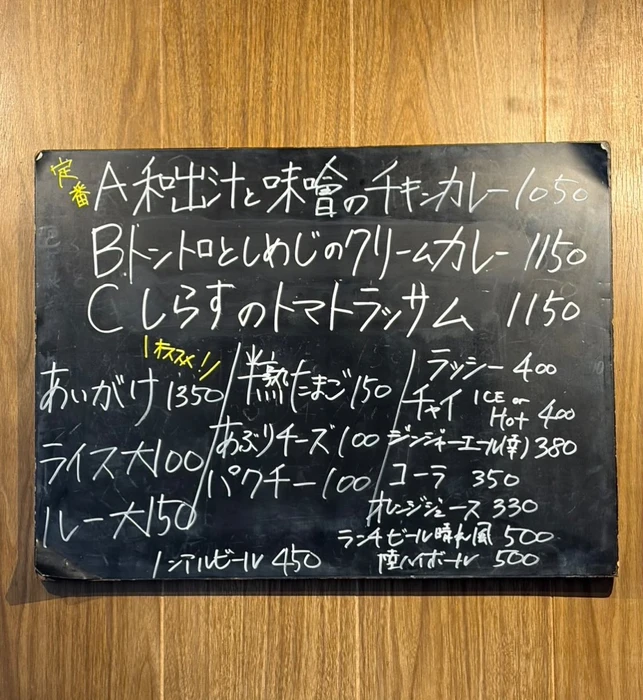 定番 A 和出汁と味噌のチキンカレー 1050
B.トントロとしめじのクリームカレー 1150
C しらすのトマトラッサム 1150
\オススメ!/
あいがけ 1350
ライス大100
ルー大150
半熟たまご150
あぶりチーズ100
パクチー100
ラッシー 400
チャイ ICE or Hot 400
ジンジャーエール(辛)380
コーラ 350
オレンジジュース 330
ランチビール晴れ風 500
陸ハイボール 500
ノンアルビール 450